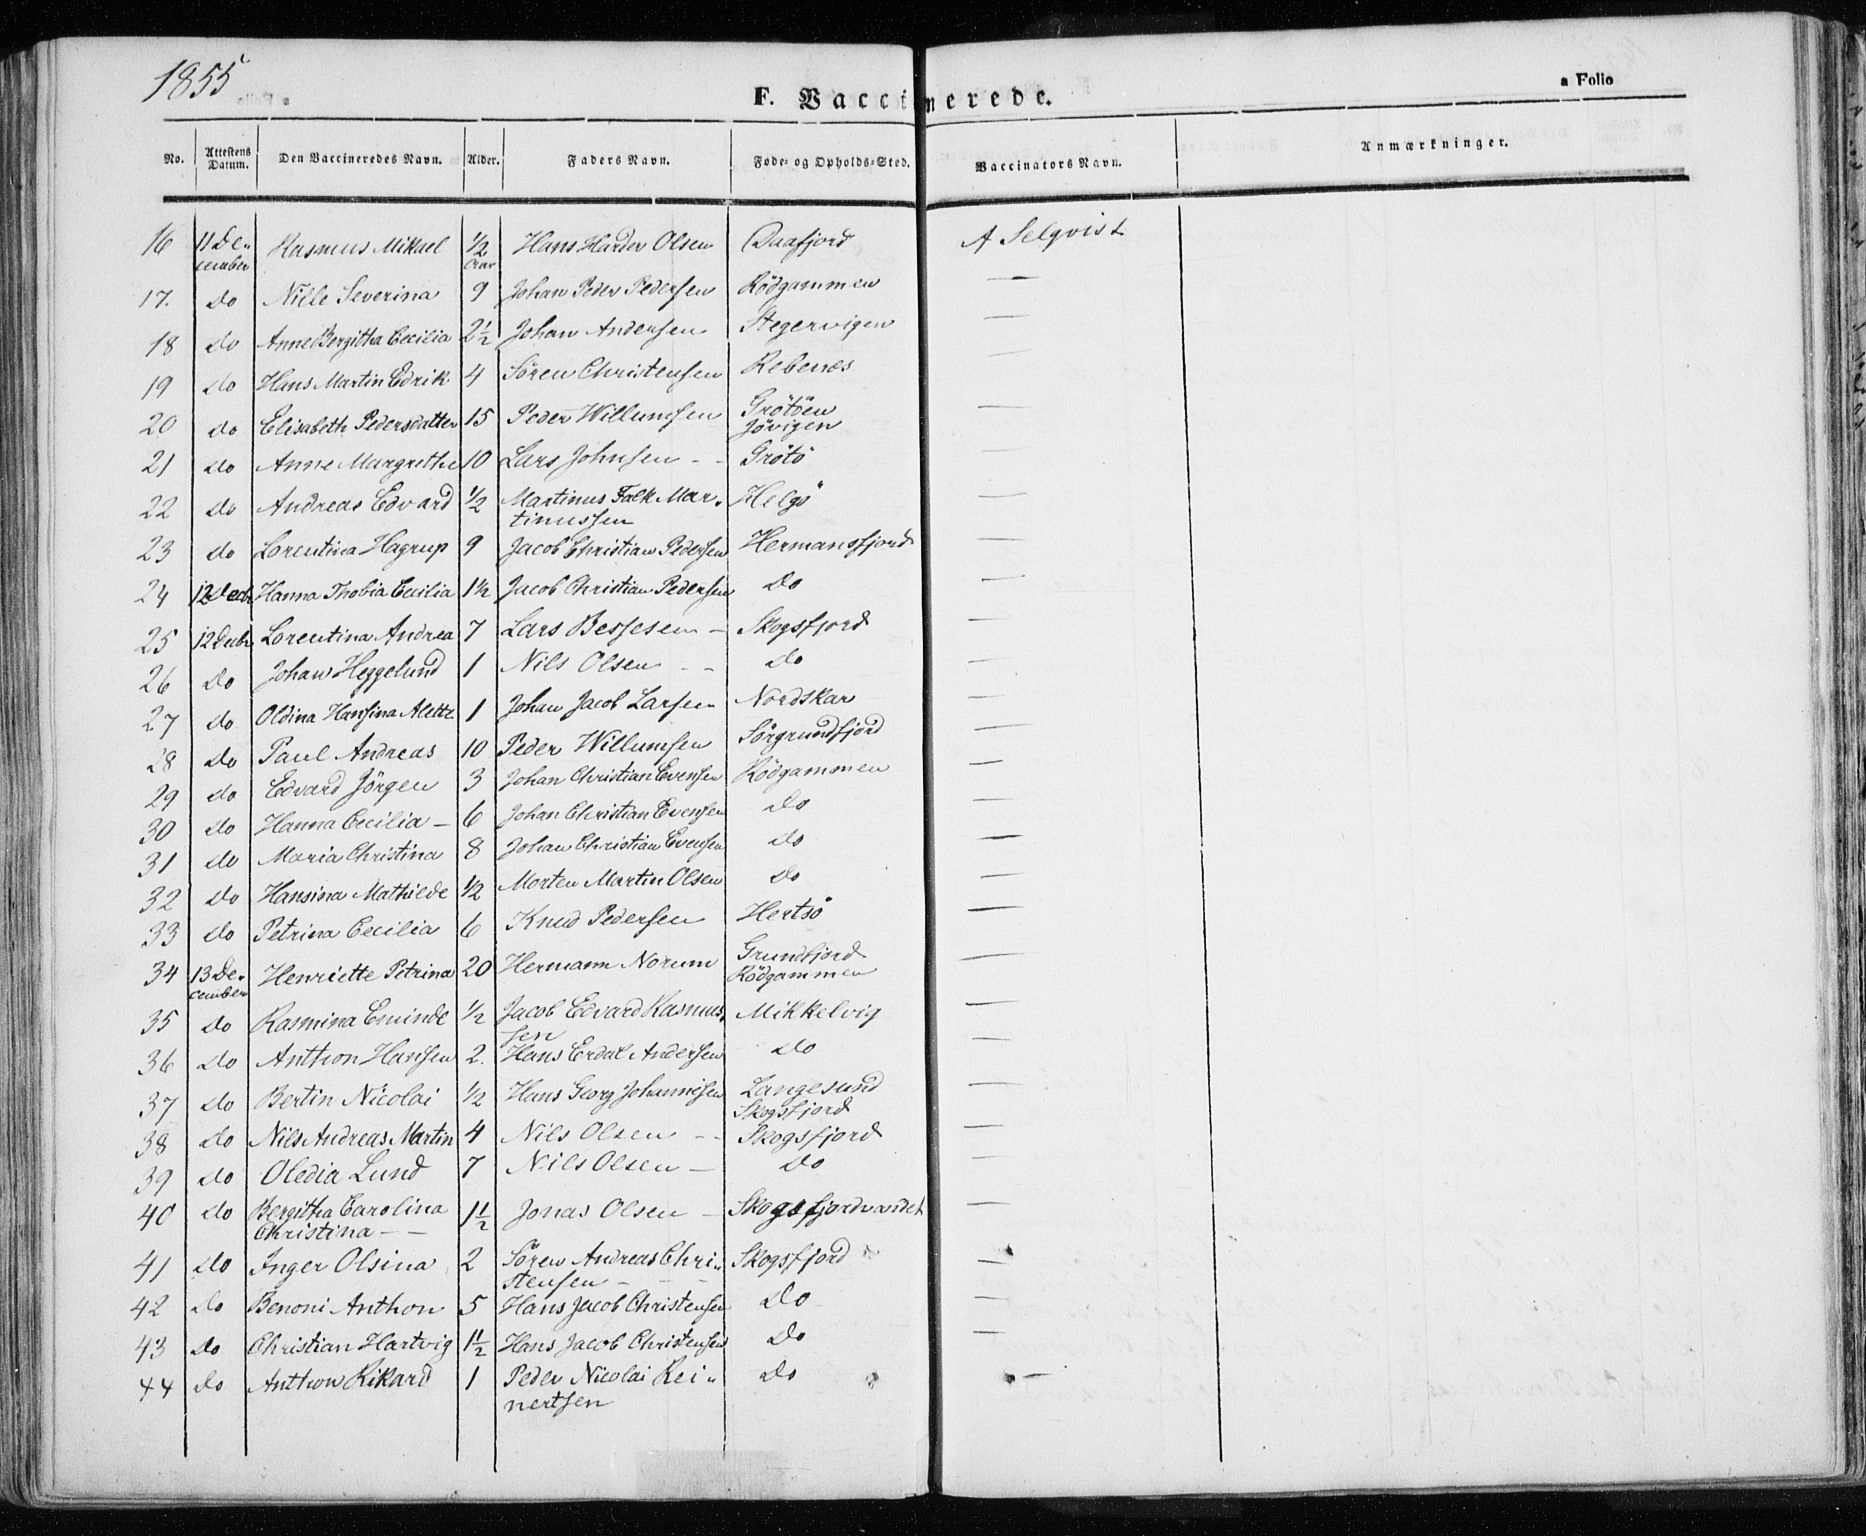 1855
a Folio
F. Vaccinerede.
No. Attestens Datum. Den Vaccineredes Navn. Alder. Faders Navn. Føde- og Opholds-Sted. Vaccinators Navn. Anmærkninger.
16 11 De- Rasmus Mikael 1/2 Hans Harder Olsen Daafjord A Selqvist
cember Aar
17. do Nille Severina 9 Johan Peder Pedersen Rödgammen —
18 do Anne Bergitha Cecilia 2 1/2 Johan Andersen Stegervigen —
19 do Hans Martin Edrik 4 Sören Christensen Rebenæs —
20 do Elisabeth Pedersdatter 15 Peder Willumsen Grötöen —
Jövigen
21 do Anne Margrethe 10 Lars Johnsen - - Grötö —
22 do Andreas Edvard 1/2 Martinus Falk Mar- Helgö —
tinussen
23 do Lorentina Hagrup 9 Jacob Christian Pedersen Hermansfjord —
24 12 Decbr Hanna Thobia Cecilia 1 1/2 Jacob Christian Pedersen Do —
25 12 Decbr Lorentina Andrea 7 Lars Bessesen — Skogsfjord —
26 do Johan Heggelund 1 Nils Olsen - - do —
27 do Oldina Hansina Alette 1 Johan Jacob Larsen Nordskar —
28 do Paul Andreas 10 Peder Willumsen Sörgrundfjord —
29 do Edvard Jörgen 3 Johan Christian Evensen Rödgammen —
30 do Hanna Cecilia — 6 Johan Christian Evensen do —
31 do Maria Christina 8 Johan Christian Evensen do —
32 do Hansina Mathilde 1/2 Morten Martin Olsen do —
33 do Petrina Cecilia 6 Knud Pedersen Hertsö —
34 13 De- Henriette Petrina 20 Hermann Norum Grundfjord —
cember Rödgammen
35 do Rasmina Eminde 1/2 Jacob Edvard Rasmus- Mikkelvig —
sen
36 do Anthon Hansen 2. Hans Erdal Andersen do —
37 do Bertin Nicolai 1/2 Hans Georg Johannesen Langesund —
Skogsfjord
38 do Nils Andreas Martin 4 Nils Olsen - - Skogsfjord —
39 do Oledia Lund 7 Nils Olsen — Do —
40 do Bergitha Carolina 1 1/2 Jonas Olsen — Skogsfjordvandet —
Christina - —
41 do Inger Olsina 2 Sören Andreas Chri- Skogsfjord —
stensen - - -
42 do Benoni Anthon 5 Hans Jacob Christensen Do —
43 do Christian Hartvig 1 1/2 Hans Jacob Christensen Do —
44 do Anthon Rikard 1 Peder Nicolai Rei- do —
nertsen